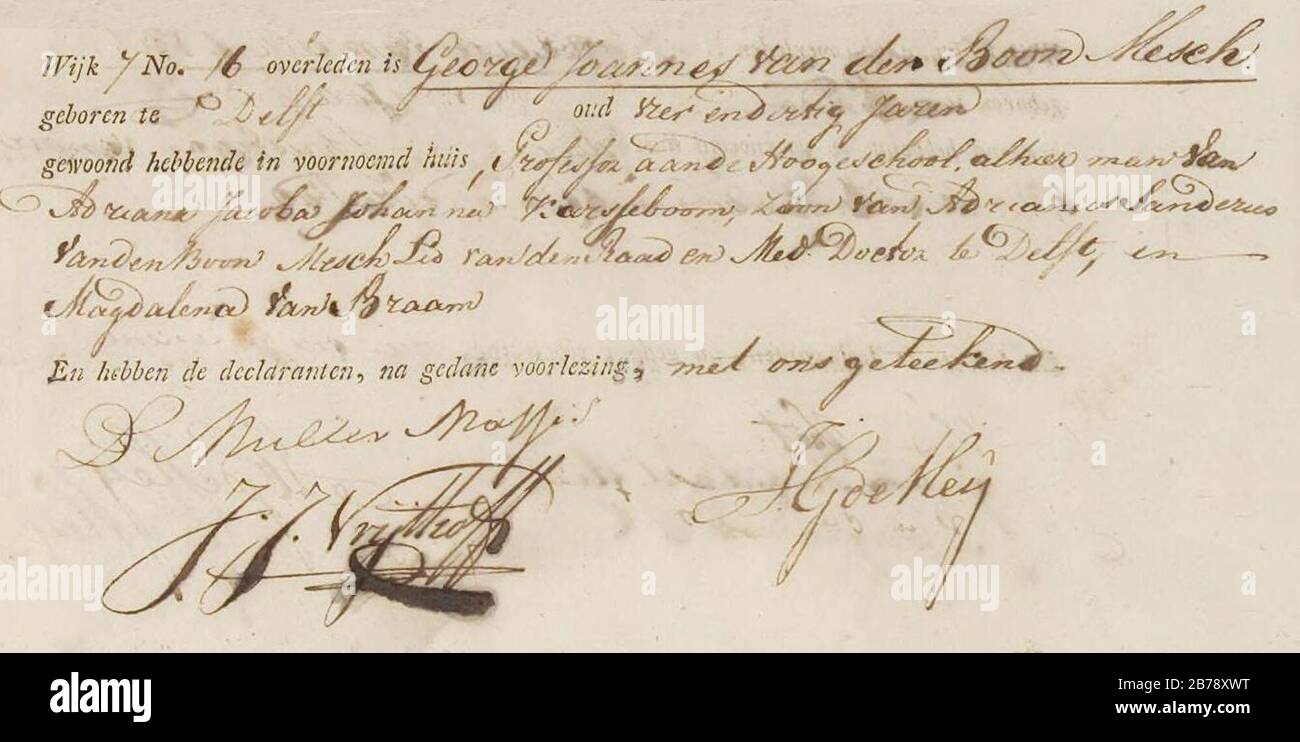 Wijk 7 No. 16 overleden is George Joannes van den Boon Mesch.
geboren te Delft oud vier en dertig Jaren
gewoond hebbende in voornoemd huis, Professor aan de Hoogeschool, alhier man van
Adriana Jacoba Johanna Karsseboom, Zoon van Adrianus Sanderus
van den Boon Mesch Lid van den Raad en Med. Doctor te Delft, en
Magdalena van Braam
En hebben de declaranten, na gedane voorlezing, met ons geteekend.
D Muller Massis
J. J. Vrijthoff J. G. de Meij
alamy
Image ID: 2B78XWT
www.alamy.com